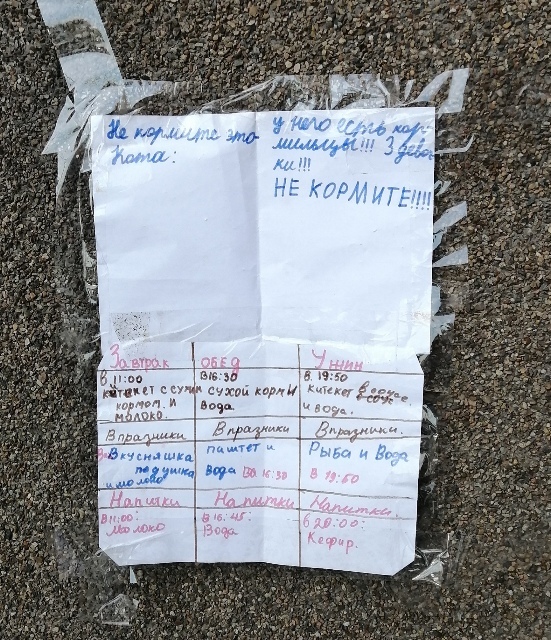 Не кормите это
Кота:
у него есть кор-
мильцы!!! 3 девоч
ки!!!
НЕ КОРМИТЕ!!!!
Завтрак
обед
Ужин
В 11:00
китекет с сухи
кормом. И
молоко.
В 16:30
сухой корм И
Вода
В 19:50
китекет в соусе
и вода.
В празники
В празники
В празники.
Вкусняшка
подушка
и молоко
паштет и
Вода В 16:30
Рыба и Вода
В 19:50
Напитки
Напитки
Напитки.
В 11:00:
Молоко
В 16:45:
Вода
в 20:00:
Кефир.